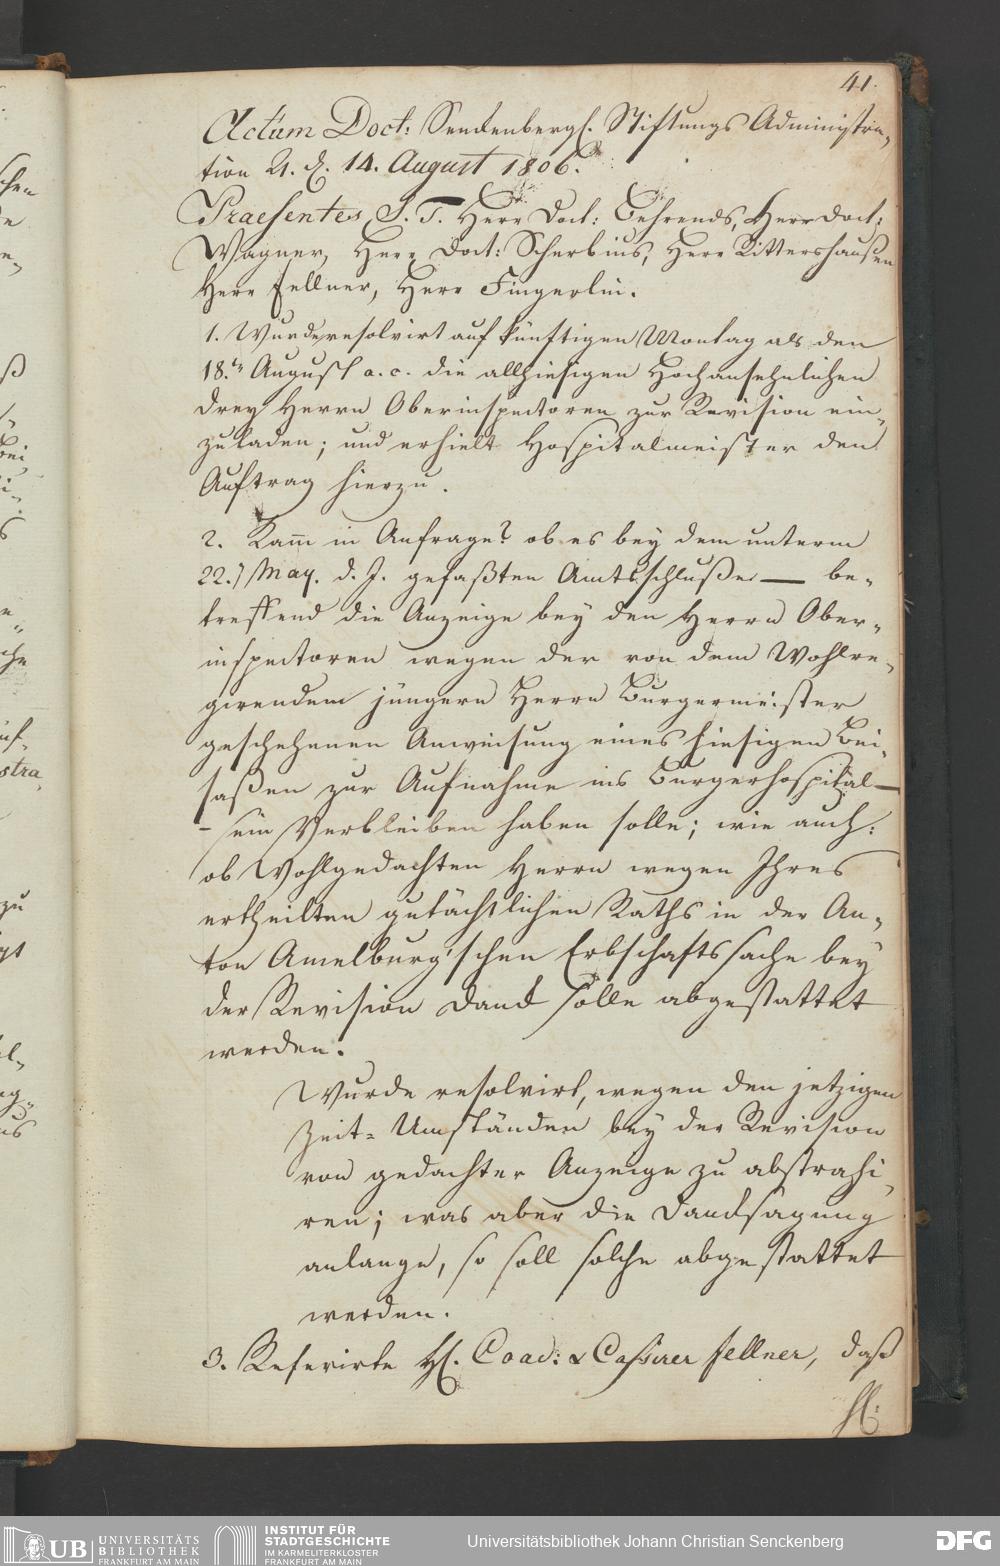 41.
Actum Doct: Senckenbergs. Stiftungs Administra„
tion A. d. 14. August 1806.
Praesentes S. T. Herr Doct: Behrends, Herr Doct:
Wagner, Herr Doct: Scherbius, Herr Rittershausen
Herr Fellner, Herr Fingerlin.
1. Wurde resolvirt auf künftigen Montag als den
18.ten August a. c. die allhiesigen Hochansehnlichen
drey Herrn Oberinspectoren zur Revision ein„
zuladen; und erhielt Hospitalmeister den
Auftrag hierzu.
2. Kam̄ in Anfrage? ob es bey dem unterm
22.) May. d. J. gefaßten Amtsschluße — be„
treffend die Anzeige bey den Herrn Ober„
inspectoren wegen der von dem Wohlre„
girendem jüngern Herrn Burgermeister
geschehenen Anweisung eines hiesigen Bei„
saßen zur Aufnahme ins Burgerhospital —
– sein Verbleiben haben solle; wie auch:
ob Wohlgedachten Herrn wegen Ihres
ertheilten gutächtlichen Raths in der An„
ton Amelburg'schen Erbschaftssache bey
der Revision Danck solle abgestattet
werden.
Wurde resolvirt, wegen den jetzigen
Zeit= Umständen bey der Revision
von gedachter Anzeige zu abstrahi„
ren; was aber die Dancksagung
anlange, so soll solche abgestattet
werden.
3. Referirte H. Coad: & Cassirer Fellner, daß
UB UNIVERSITÄTS
BIBLIOTHEK
FRANKFURT AM MAIN
INSTITUT FÜR
STADTGESCHICHTE
IM KARMELITERKLOSTER
FRANKFURT AM MAIN
Universitätsbibliothek Johann Christian Senckenberg
DFG